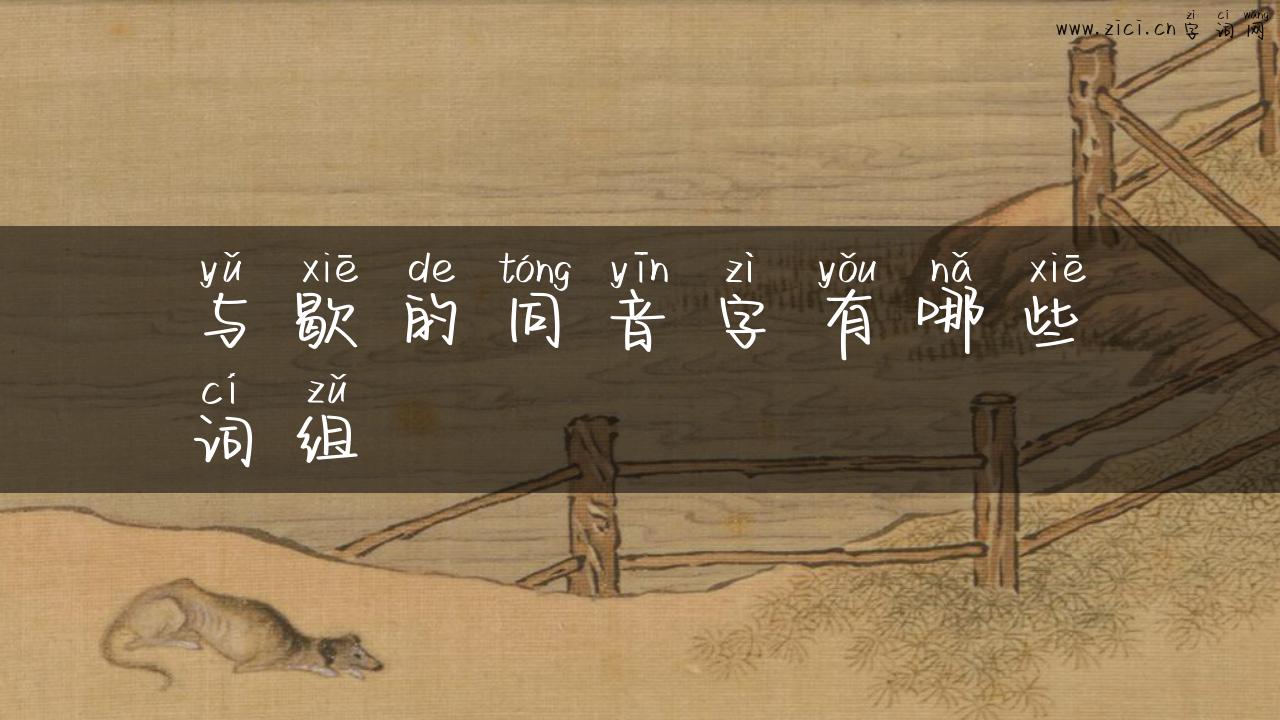 zì cí wǎng
www.zici.cn 字词网
yǔ xiē de tóng yīn zì yǒu nǎ xiē
与歇的同音字有哪些
cí zǔ
词组